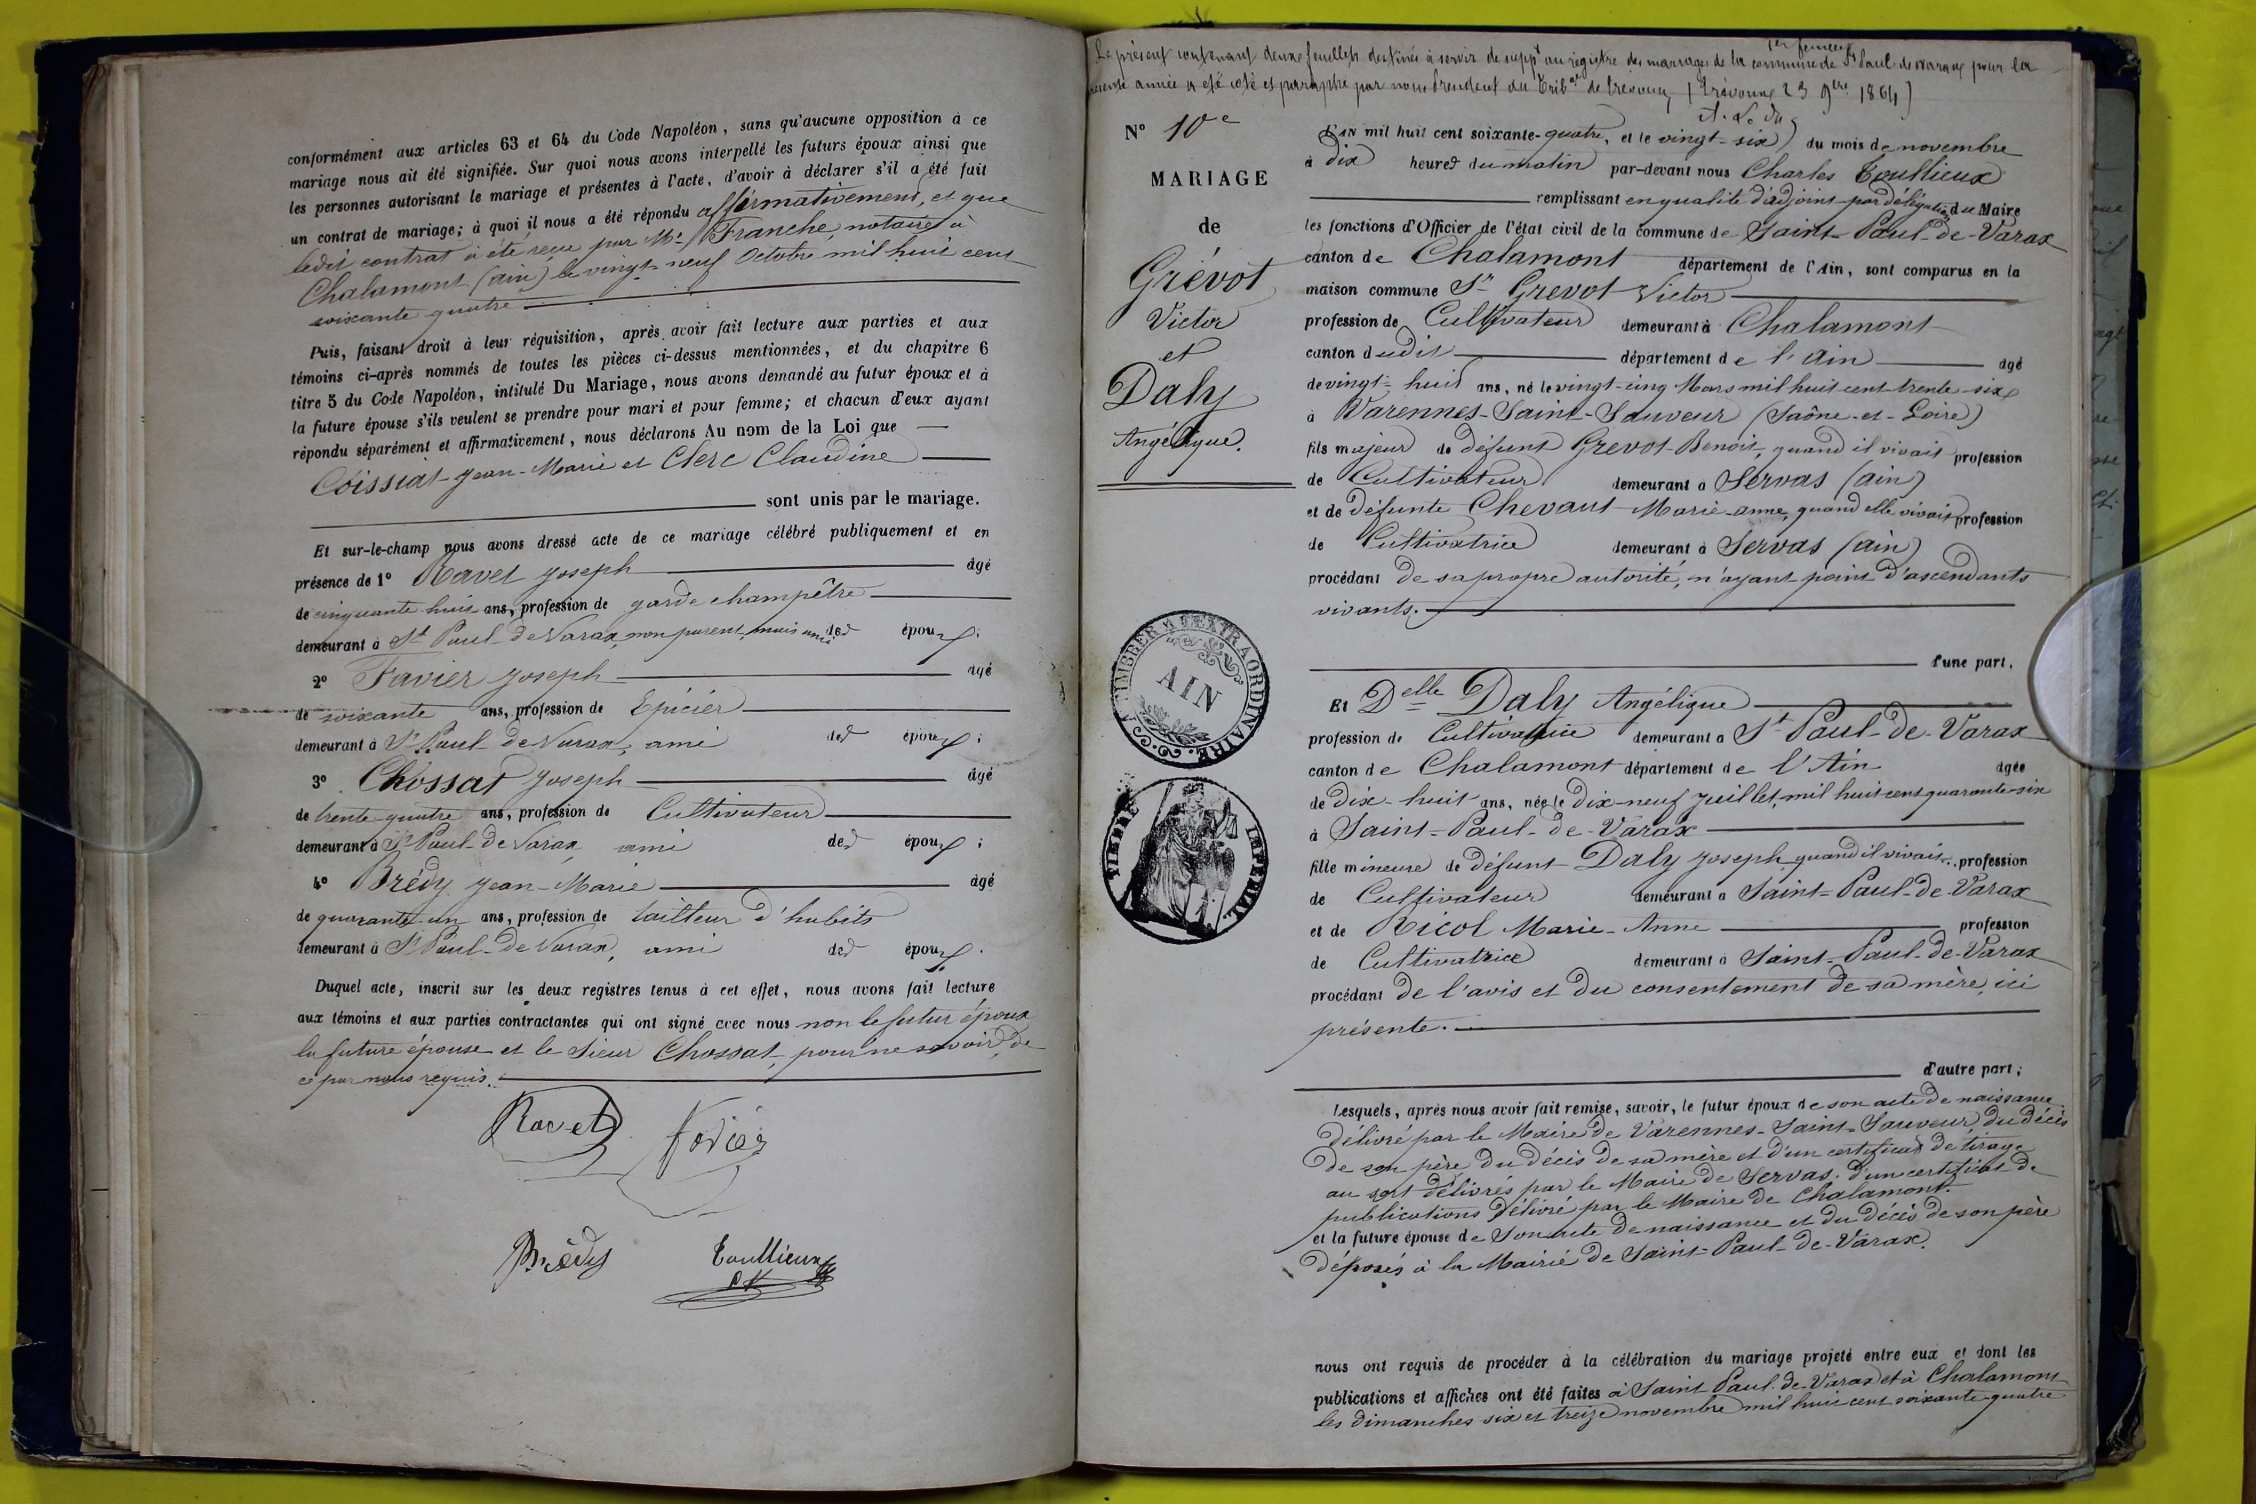 conformément aux articles 63 et 64 du Code Napoléon, sans qu'aucune opposition à ce
mariage nous ait été signifiée. Sur quoi nous avons interpellé les futurs époux ainsi que
les personnes autorisant le mariage et présentes à l'acte, d'avoir à déclarer s'il a été fait
un contrat de mariage; à quoi il nous a été répondu affirmativement, et que
ledit contrat a été reçu par Me Franche, notaire à
Chalamont (ain) le vingt-neuf Octobre mil huit cent
soixante quatre
Puis, faisant droit à leur réquisition, après avoir fait lecture aux parties et aux
témoins ci-après nommés de toutes les pièces ci-dessus mentionnées, et du chapitre 6
titre 5 du Code Napoléon, intitulé Du Mariage, nous avons demandé au futur époux et à
la future épouse s'ils veulent se prendre pour mari et pour femme; et chacun d'eux ayant
répondu séparément et affirmativement, nous déclarons Au nom de la Loi que
Coissiat Jean-Marie et Clerc Claudine
sont unis par le mariage.
Et sur-le-champ nous avons dressé acte de ce mariage célébré publiquement et en
présence de 1° Ravet Joseph âgé
de cinquante huit ans, profession de garde champêtre
demeurant à St Paul de Varax, non parent, mais ami des époux;
2° Favier Joseph âgé
de soixante ans, profession de Epicier
demeurant à St Paul de Varax, ami des époux;
3° Chossat Joseph âgé
de trente-quatre ans, profession de Cultivateur
demeurant à St Paul de Varax, ami des époux;
4° Brédy Jean-Marie âgé
de quarante-un ans, profession de tailleur d'habits
demeurant à St Paul-de Varax, ami des époux.
Duquel acte, inscrit sur les deux registres tenus à cet effet, nous avons fait lecture
aux témoins et aux parties contractantes qui ont signé avec nous non le futur époux
la future épouse et le sieur Chossat, pour ne savoir, de
ce par nous requis.
Ravet Favier
Brédy Toullieux
Le présent contenant deux feuillets destinés à servir de suppt au registre des mariages de la commune de St Paul de Varax pour la
présente année a été coté et paraphé par nous Président du Tribal de Trévoux (Trévoux 23 9bre 1864)
N° 10e
MARIAGE
de
Grévot
Victor
et
Daly
Angélique.
A TIMBRER A L'EXTRAORDINAIRE
AIN
TIMBRE IMPÉRIAL
L'AN mil huit cent soixante-quatre, et le vingt-six du mois de novembre
à dix heures du matin par-devant nous Charles Toullieux
remplissant en qualité d'adjoint par délégation du Maire
les fonctions d'Officier de l'état civil de la commune de Saint-Paul-de-Varax
canton de Chalamont département de l'Ain, sont comparus en la
maison commune Sr Grevot Victor
profession de Cultivateur demeurant à Chalamont
canton dudit département de l'Ain âgé
de vingt-huit ans, né le vingt-cinq Mars mil huit cent trente-six
à Varennes-Saint-Sauveur (Saône-et-Loire)
fils majeur de défunt Grevot Benoit, quand il vivait profession
de Cultivateur demeurant à Servas (ain)
et de défunte Chevant Marie-anne, quand elle vivait profession
de Cultivatrice demeurant à Servas (ain)
procédant de sa propre autorité, n'ayant point d'ascendants
vivants.
d'une part,
Et Delle Daly Angélique
profession de Cultivatrice demeurant à St Paul-de-Varax
canton de Chalamont département de l'Ain âgée
de dix-huit ans, née le dix-neuf juillet mil huit cent quarante-six
à Saint-Paul-de-Varax
fille mineure de défunt Daly Joseph quand il vivait profession
de Cultivateur demeurant à Saint-Paul-de-Varax
et de Nicol Marie-Anne profession
de Cultivatrice demeurant à Saint-Paul-de-Varax
procédant de l'avis et du consentement de sa mère, ici
présente.
d'autre part;
Lesquels, après nous avoir fait remise, savoir, le futur époux de son acte de naissance
délivré par le Maire de Varennes-Saint-Sauveur, du décès
de son père du décès de sa mère et d'un certificat de tirage
au sort délivrés par le Maire de Servas, d'un certificat de
publications délivré par le Maire de Chalamont.
et la future épouse de son acte de naissance et du décès de son père
déposés à la Mairie de Saint-Paul-de-Varax.
nous ont requis de procéder à la célébration du mariage projeté entre eux et dont les
publications et affiches ont été faites à Saint Paul de Varax et à Chalamont
les dimanches six et treize novembre mil huit cent soixante-quatre